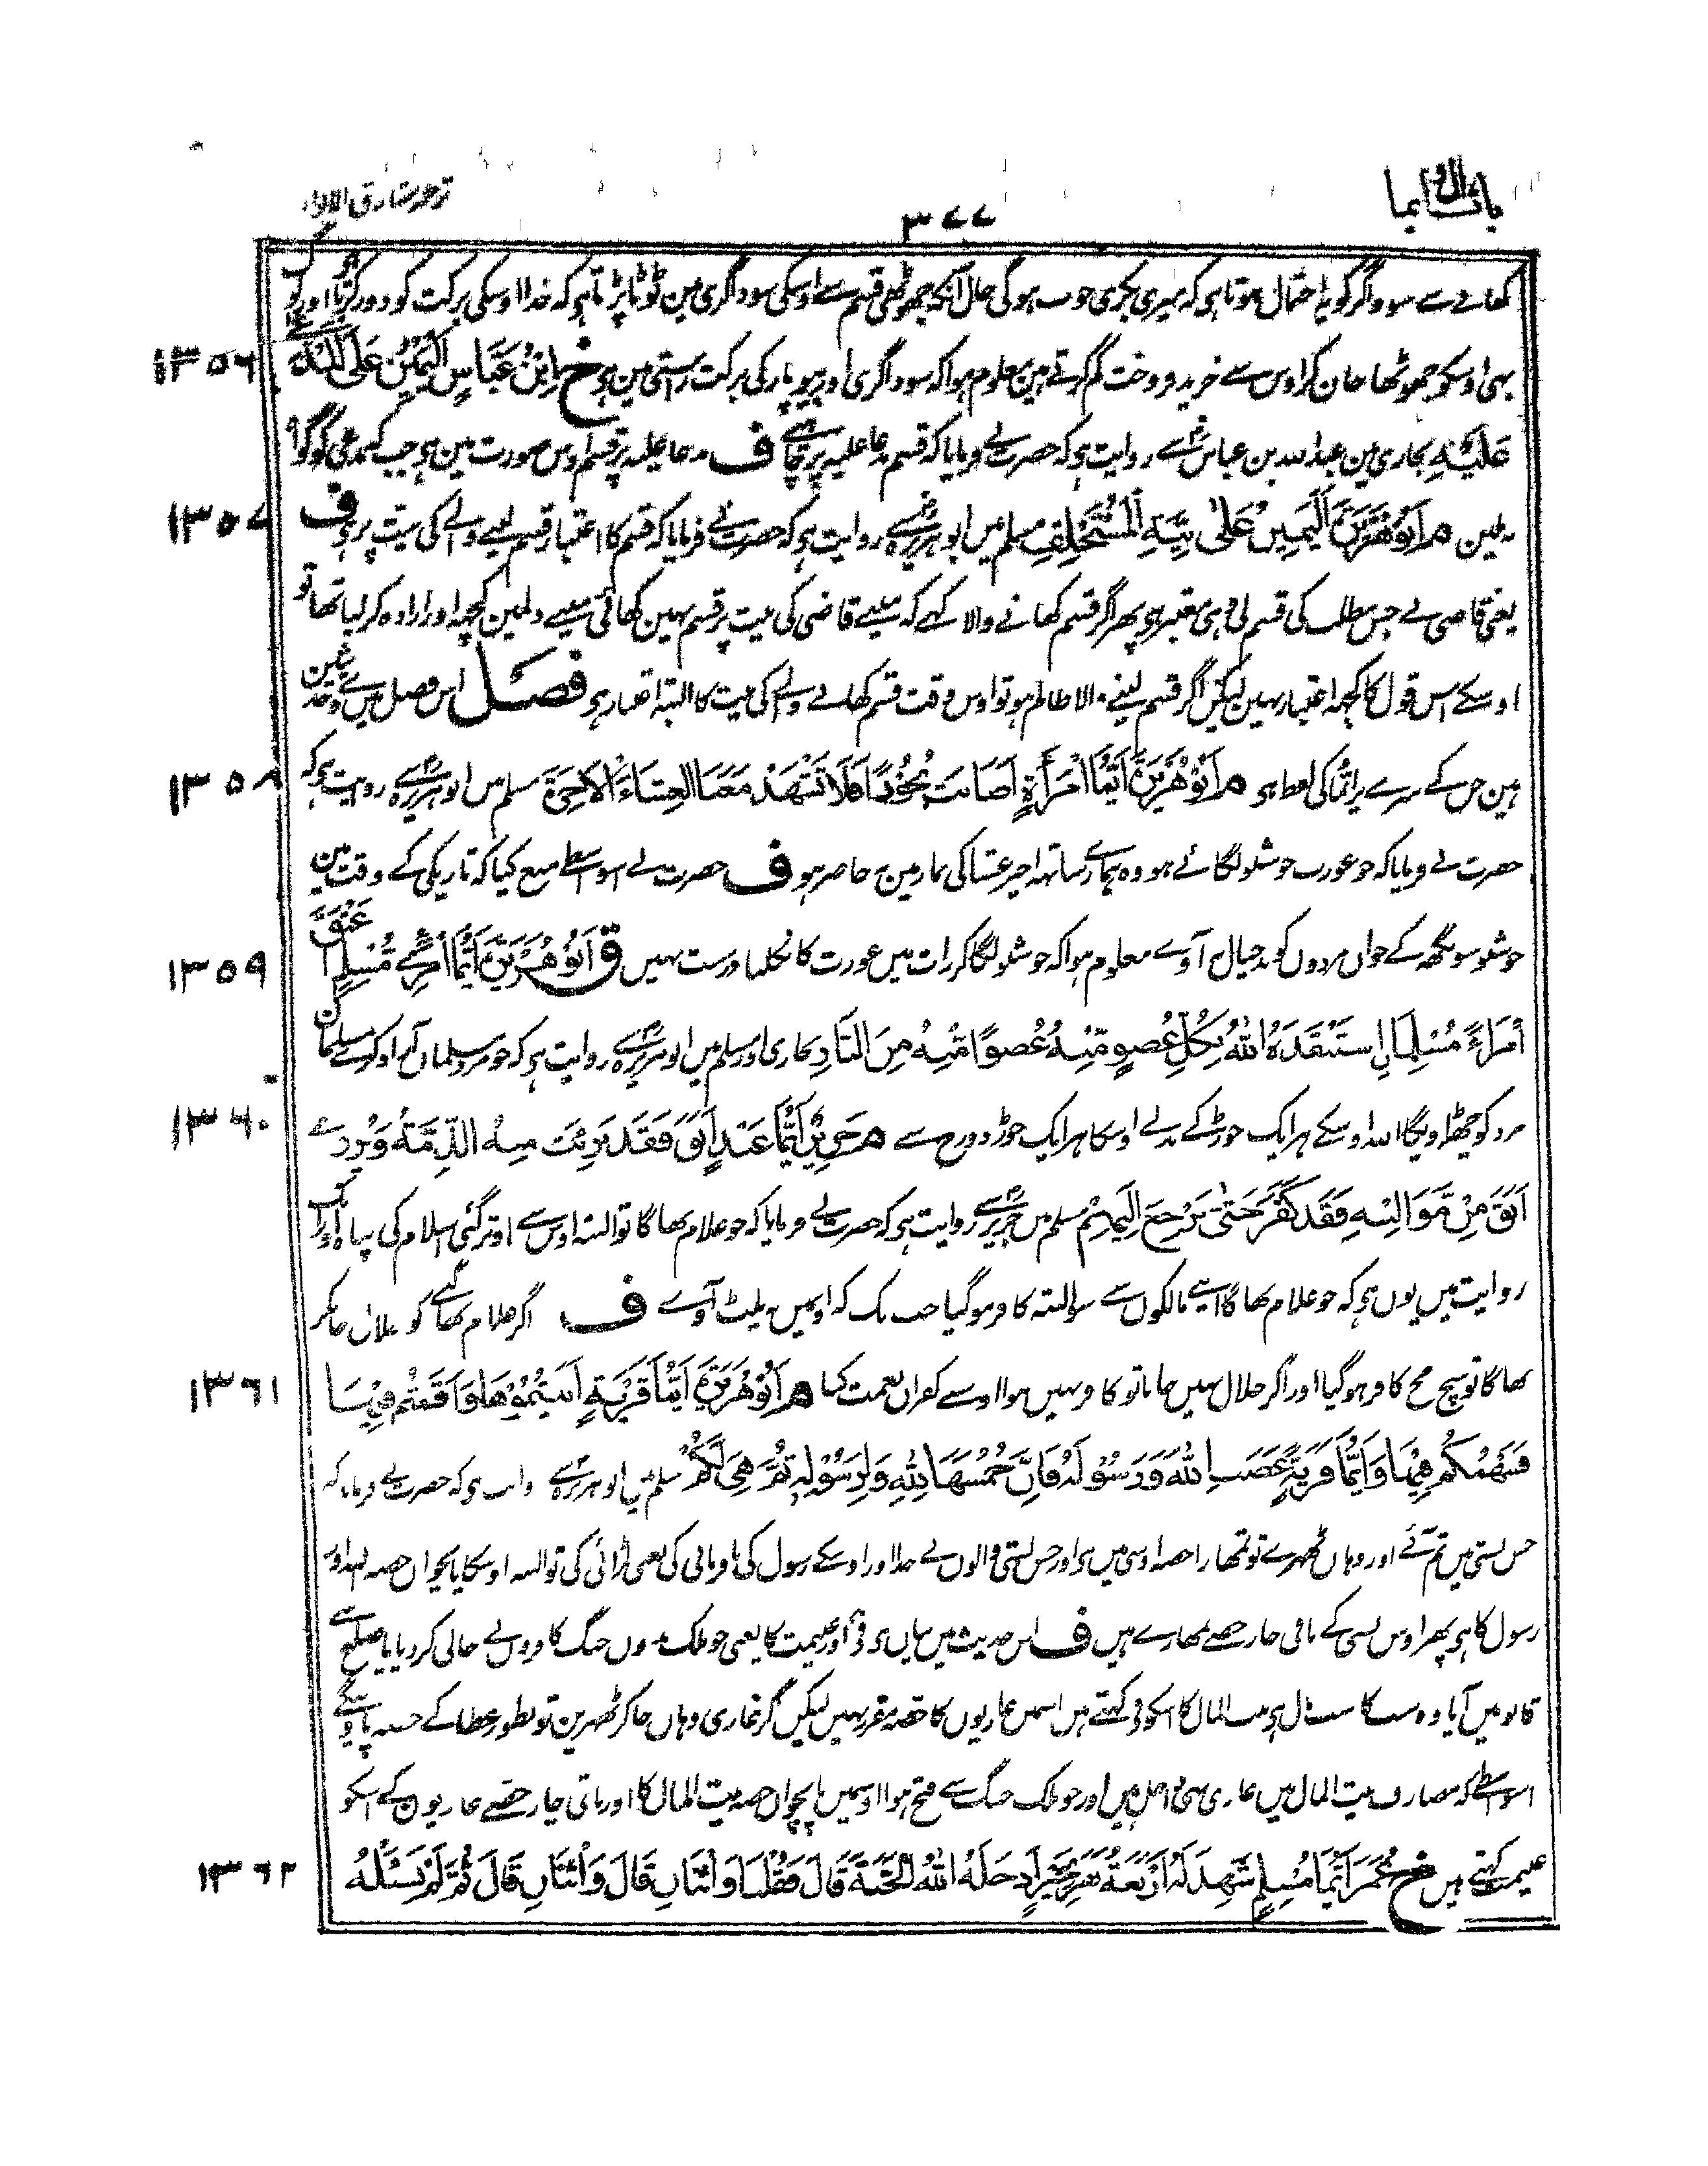 ترجمہ مشارق الانوار
٣٧٧
کھانے سے سوداگر کو یہ احتمال ہوتا ہی کہ میری بکری خوب ہوگی حال آنکہ جھوٹھی قسم سے اوسکی سوداگری مین ٹوٹا پڑتا ہی کہ خدا اوسکی برکت کو دور کرتا اور لوگ
بھی اوسکو جھوٹھا جان کر اوس سے خرید و فروخت کم کرتے ہین معلوم ہوا کہ سوداگری اور بیوپار کی برکت راستی مین ہی خ ابْنُ عَبَّاسٍ اَلْيَمِيْنُ عَلَى الْمُدَّعٰى
١٣٥٦
عَلَيْهِ بخاری مین عبداللہ بن عباس سے روایت ہی کہ حضرت نے فرمایا کہ قسم مدعا علیہ پر ہے ف مدعا علیہ پر قسم اوس صورت مین ہی جب کہ مدعی کو گواہ
نہ ملین م اَبُوْ هُرَيْرَةَ اَلْيَمِيْنُ عَلٰى نِيَّةِ الْمُسْتَحْلِفِ مسلم میں ابو ہریرہ سے روایت ہی کہ حضرت نے فرمایا کہ قسم کا اعتبار قسم لینے والے کی نیت پر ہی ف
١٣٥٧
یعنی قاضی نے جس مطلب کی قسم لی وہی معتبر ہی پھر اگر قسم کھانے والا کہے کہ مینے قاضی کی نیت پر قسم نہین کھائی مینے دلمین کچھ اور ارادہ کر لیا تھا تو
اوسکے اس قول کا کچھ اعتبار نہین لیکن اگر قسم لینے والا ظالم ہو تو اوس وقت قسم کھانے والے کی نیت کا البتہ اعتبار ہی فصل اس فصل میں وے حدیثین
ہین جن کے سرے پر ایّما کی لفظ ہی م اَبُوْ هُرَيْرَةَ اَيُّمَا امْرَأَةٍ اَصَابَتْ بُخُوْرًا فَلَا تَشْهَدْ مَعَنَا الْعِشَاءَ الْاٰخِرَةَ مسلم میں ابو ہریرہ سے روایت ہی کہ
١٣٥٨
حضرت نے فرمایا کہ جو عورت خوشبو لگائے ہو وہ ہمارے ساتھ اخیر عشا کی نماز مین نہ حاضر ہو ف حضرت نے اسواسطے منع کیا کہ تاریکی کے وقت مین
خوشبو سونگھ کے جوان مردوں کو بد خیال نہ آوے معلوم ہوا کہ خوشبو لگا کر رات میں عورت کا نکلنا درست نہیں ق اَبُوْ هُرَيْرَةَ اَيُّمَا امْرِئٍ مُسْلِمٍ اَعْتَقَ
١٣٥٩
اِمْرَاءً مُسْلِمًا اِسْتَنْقَذَهُ اللّٰهُ بِكُلِّ عُضْوٍ مِّنْهُ عُضْوًا مِّنْهُ مِنَ النَّارِ بخاری اور مسلم میں ابو ہریرہ سے روایت ہی کہ جو مرد مسلمان آزاد کرے مسلمان
مرد کو چھٹاویگا اللہ اوسکے ہر ایک جوڑ کے بدلے اوسکا ہر ایک جوڑ دوزخ سے م جَرِيْرٌ اَيُّمَا عَبْدٍ اَبَقَ فَقَدْ بَرِئَتْ مِنْهُ الذِّمَّةُ وَيُرْوٰى
١٣٦٠
اَبَقَ مِنْ مَّوَالِيْهِ فَقَدْ كَفَرَ حَتّٰى يَرْجِعَ اِلَيْهِمْ مسلم میں جریر سے روایت ہی کہ حضرت نے فرمایا کہ جو غلام بھاگا تو البتہ اوس سے اوتر گئی اسلام کی پناہ اور ایک
روایت میں یوں ہی کہ جو غلام بھاگا اپنے مالکوں سے سو البتہ کافر ہو گیا جب تک کہ اونمیں نہ پلٹ آوے ف اگر غلام بھاگنے کو حلال جانکر
بھاگا تو سچ مچ کافر ہو گیا اور اگر حلال نہیں جانا تو کافر نہیں ہوا اوسنے کفران نعمت کیا م اَبُوْ هُرَيْرَةَ اَيُّمَا قَرْيَةٍ اَتَيْتُمُوْهَا وَاَقَمْتُمْ فِيْهَا
١٣٦١
فَسَهْمُكُمْ فِيْهَا وَاَيُّمَا قَرْيَةٍ عَصَتِ اللّٰهَ وَرَسُوْلَهُ فَاِنَّ خُمُسَهَا لِلّٰهِ وَلِرَسُوْلِهِ ثُمَّ هِيَ لَكُمْ مسلم میں ابو ہریرہ سے روایت ہی کہ حضرت نے فرمایا کہ
جس بستی میں تم آئے اور وہاں ٹھہرے تو تمھارا حصہ اوسی میں ہی اور جس بستی والوں نے خدا اور اوسکے رسول کی نافرمانی کی یعنی لڑائی کی تو البتہ اوسکا پانچواں حصہ اللہ اور
رسول کا ہی پھر اوس بستی کے باقی چار حصے تمھارے ہیں ف اس حدیث میں بیان ہی فی اور غنیمت کا یعنی جو ملک بدون جنگ کافروں نے خالی کر دیا یا صلح سے
قابو میں آیا وہ سب کا سب مال ہی بیت المال کا اسکو فی کہتے ہیں اسمیں غازیوں کا حصہ مقرر نہیں لیکن اگر غازی وہاں جا کر ٹھہرین تو بطور عطا کے حصہ پاوینگے
اسواسطے کہ مصارف بیت المال میں غازی بھی داخل ہیں اور جو ملک جنگ سے فتح ہوا اوسمیں پانچواں حصہ بیت المال کا اور باقی چار حصے غازیوں کے اسکو
غنیمت کہتے ہیں خ عُمَرُ اَيُّمَا مُسْلِمٍ شَهِدَ لَهُ اَرْبَعَةُ نَفَرٍ بِخَيْرٍ اَدْخَلَهُ اللّٰهُ الْجَنَّةَ قَالَ فَقُلْنَا وَاثْنَانِ قَالَ وَاثْنَانِ قَالَ ثُمَّ لَمْ نَسْئَلْهُ
١٣٦٢